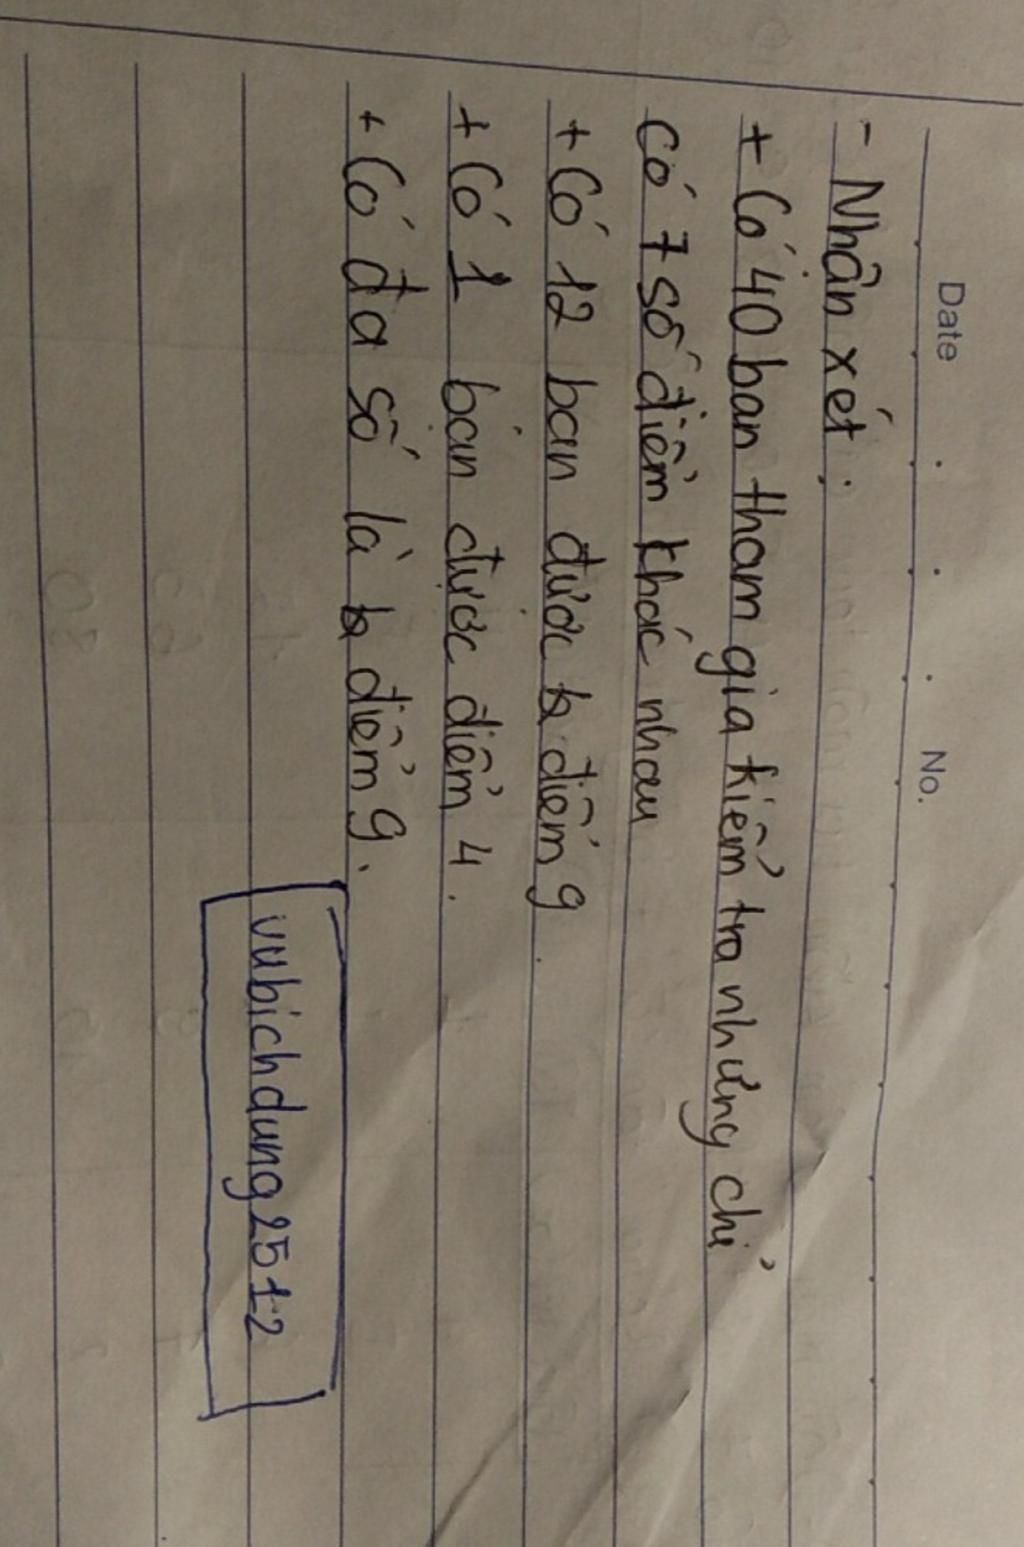 Date No.
- Nhận xét:
+ Có 40 bạn tham gia kiểm tra nhưng chỉ
có 7 số điểm khác nhau
+ Có 12 bạn được điểm 9.
+ Có 1 bạn được điểm 4.
+ Có đa số là điểm 9.
vubichdung2512